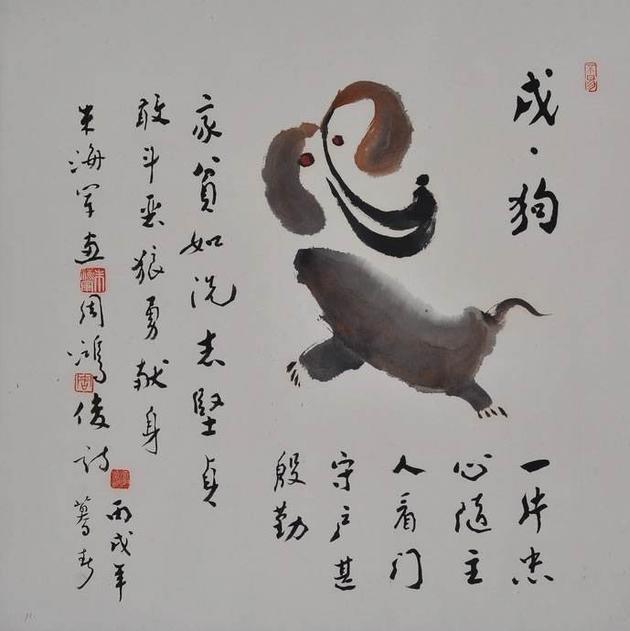 戌·狗
一片忠
心随主
人看门
守户甚
殷勤
家貧如洗志堅貞
敢斗恶狼勇献身
朱海军画周鸿俊诗
丙戌年
暮春